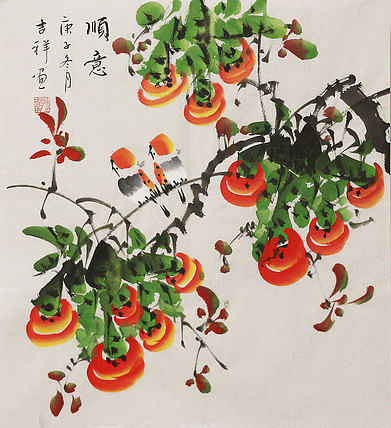 順意
庚子冬月
吉祥画